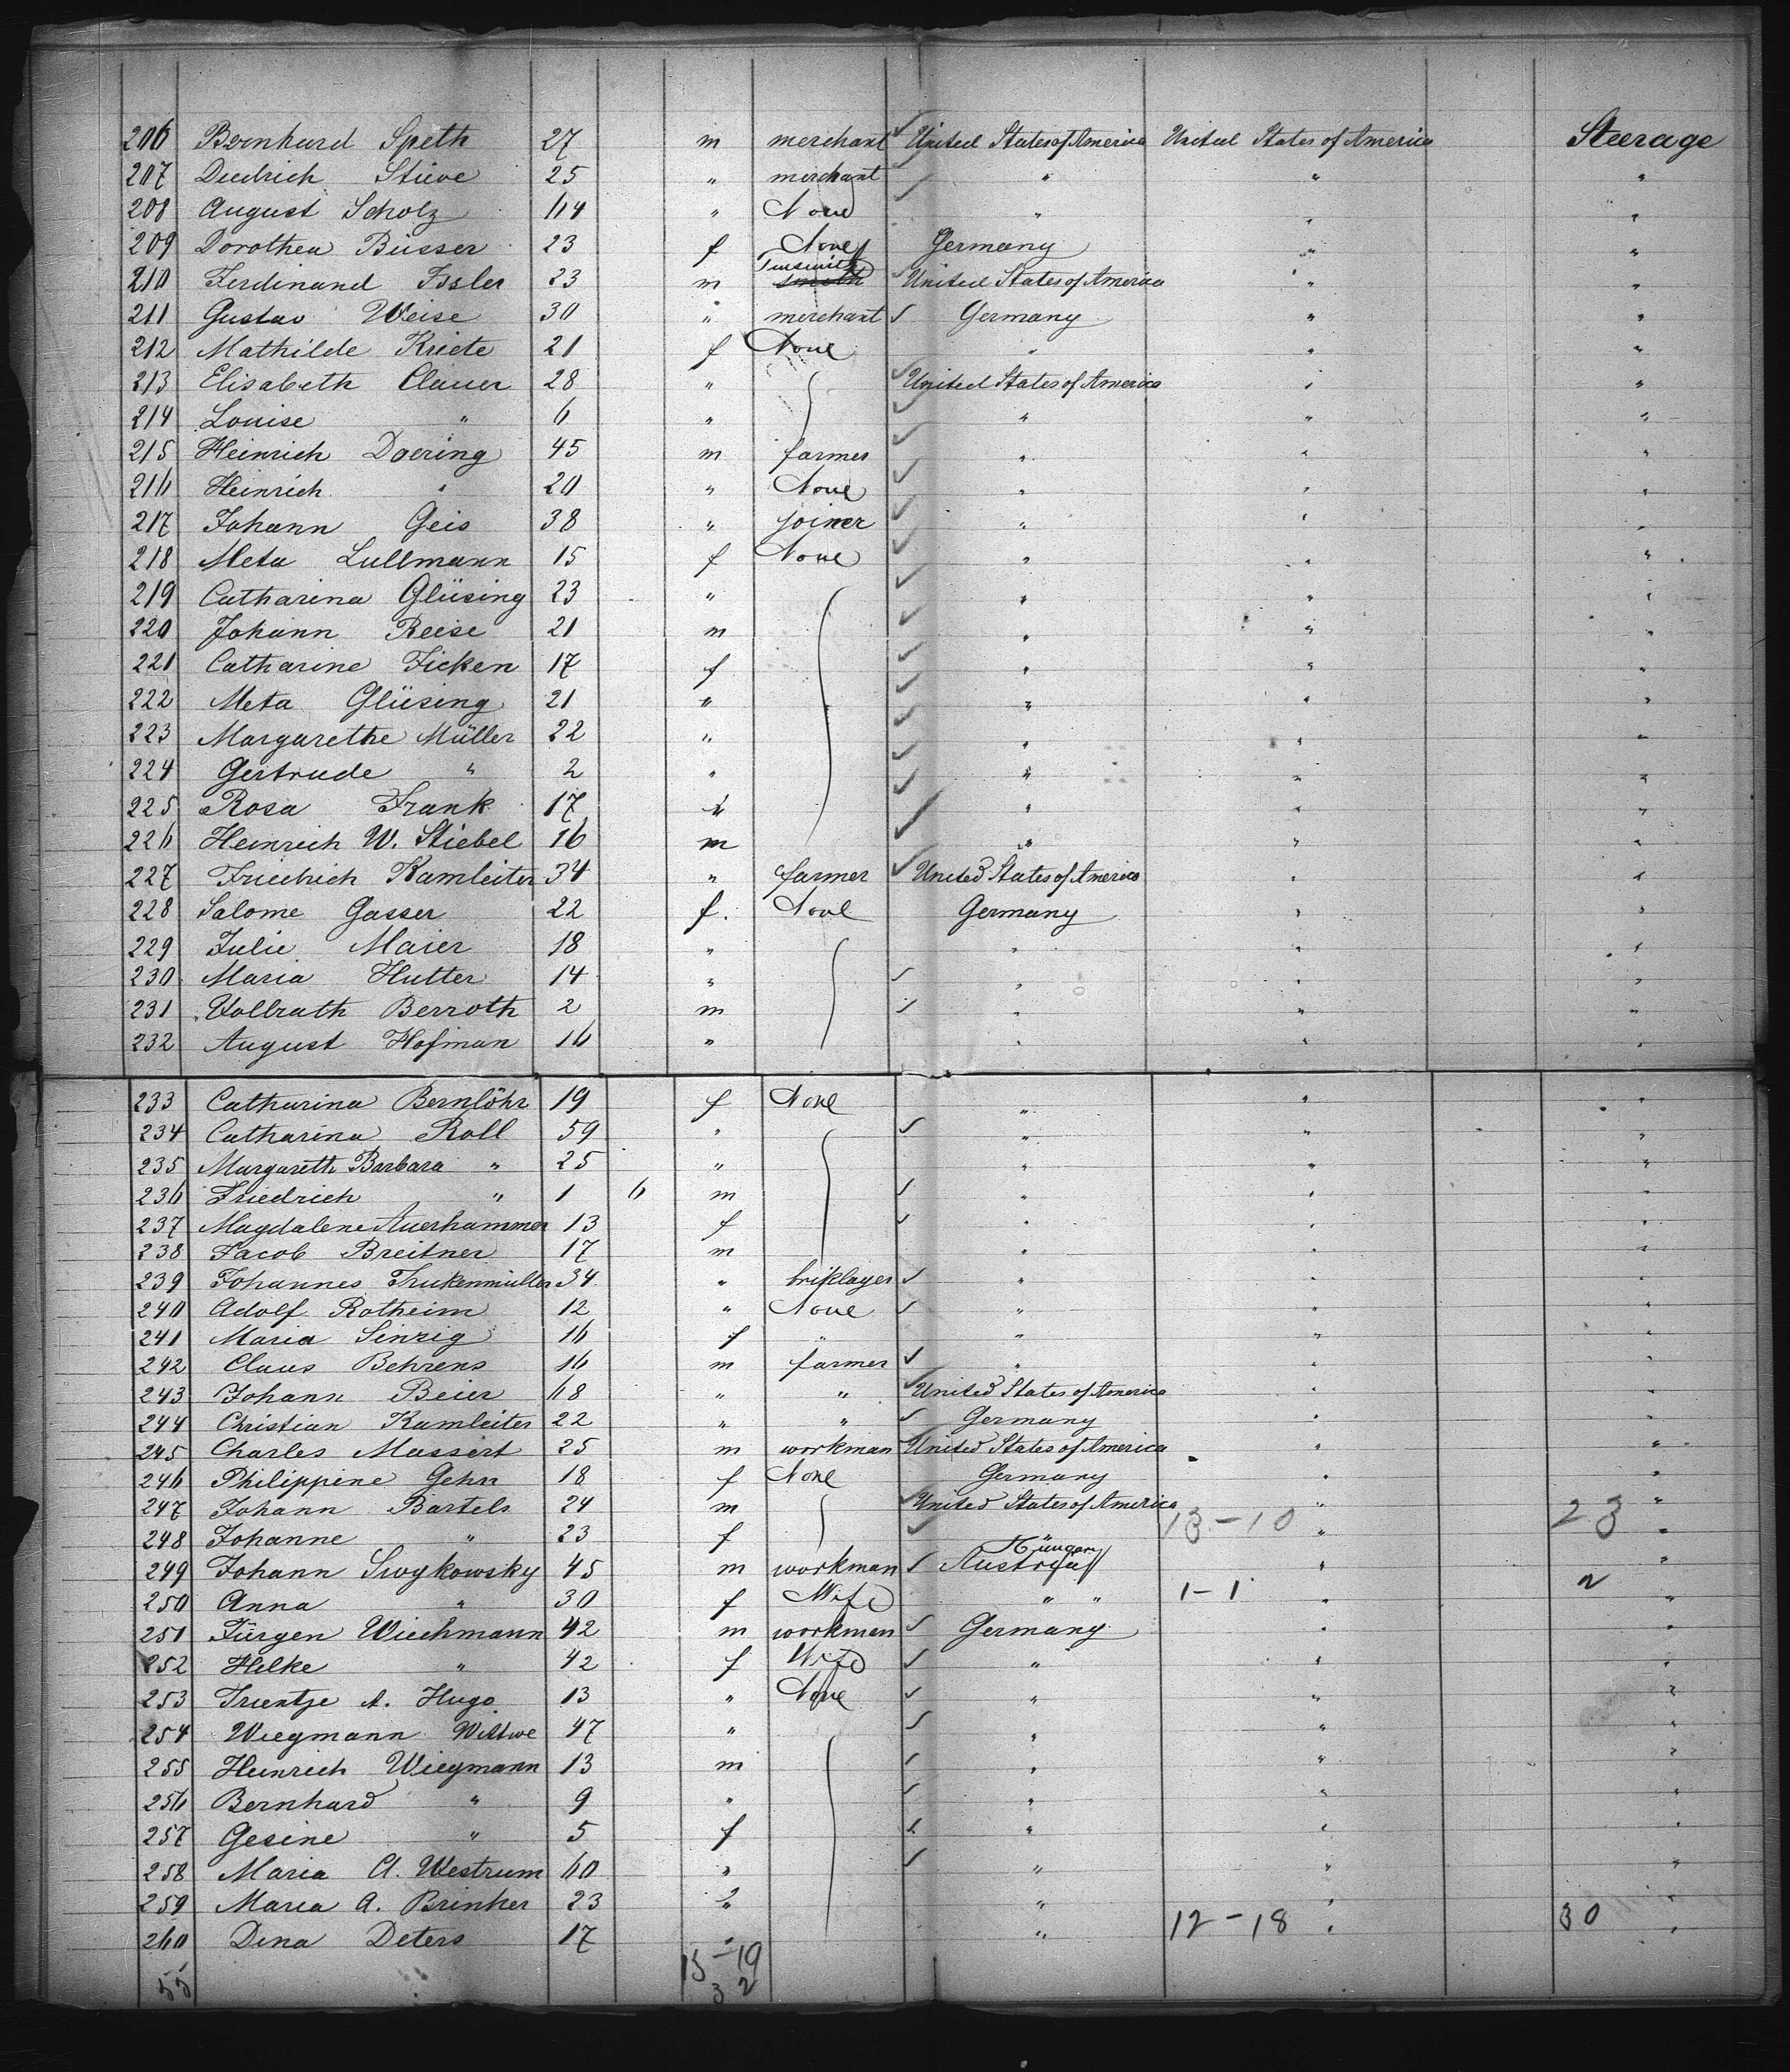 206 Bernhard Speth 27 m merchant ✓ United States of America United States of America Steerage
207 Diedrich Stieve 25 " merchant ✓ " " "
208 August Scholz 64 " None ✓ " " "
209 Dorothea Büsser 23 f None Germany " "
210 Ferdinand Issler 23 m Tinsmith ✓ United States of America " "
211 Gustav Weise 30 " merchant ✓ Germany " "
212 Mathilde Kriete 21 f None " " "
213 Elisabeth Clauer 28 " ✓ United States of America " "
214 Louise " 6 " ✓ " " "
215 Heinrich Doering 45 m farmer ✓ " " "
216 Heinrich " 20 " None ✓ " " "
217 Johann Geis 38 " joiner ✓ " " "
218 Meta Lullmann 15 f None ✓ " " "
219 Catharina Glüsing 23 " ✓ " " "
220 Johann Reese 21 m ✓ " " "
221 Catharine Ficken 17 f ✓ " " "
222 Meta Glüsing 21 " ✓ " " "
223 Margarethe Müller 22 " ✓ " " "
224 Gertrude " 2 " ✓ " " "
225 Rosa Frank 17 " ✓ " " "
226 Heinrich W. Stiebel 16 m ✓ " " "
227 Friedrich Kamleiter 34 " farmer ✓ United States of America " "
228 Salome Gasser 22 f. None Germany " "
229 Julie Maier 18 " " " "
230 Maria Hutter 14 " ✓ " " "
231 Vollrath Berroth 2 m ✓ " " "
232 August Hofman 16 " " " "
233 Catharina Bernlöhr 19 f None " " "
234 Catharina Roll 59 " ✓ " " "
235 Margareth Barbara " 25 " " " "
236 Friedrich " 1 6 m ✓ " " "
237 Magdalene Auerhammer 13 f ✓ " " "
238 Jacob Breitner 17 m " " "
239 Johannes Trukenmüller 34 " briklayer ✓ " " "
240 Adolf Rotheim 12 " None ✓ " " "
241 Maria Sinzig 16 f " " " "
242 Claus Behrens 16 m farmer ✓ " " "
243 Johann Beier 68 " " ✓ United States of America " "
244 Christian Kamleiter 22 " " ✓ Germany " "
245 Charles Massert 25 m workman United States of America " "
246 Philippine Gehn 18 f None Germany " "
247 Johann Bartels 24 m ✓ United States of America " "
248 Johanne " 23 f ✓ " 13-10 " 23 "
249 Johann Swykowsky 45 m workman ✓ Austria Hungary " "
250 Anna " 30 f Wife " " 1-1 " 2 "
251 Jürgen Wiechmann 42 m workman ✓ Germany " "
252 Helke " 42 f Wife ✓ " " "
253 Trientje A. Hugo 13 " None ✓ " " "
254 Wiegmann Wittwe 47 " ✓ " " "
255 Heinrich Wiegmann 13 m ✓ " " "
256 Bernhard " 9 " ✓ " " "
257 Gesine " 5 f ✓ " " "
258 Maria A. Westrum 60 " ✓ " " "
259 Maria A. Brinker 23 " " " "
260 Dina Deters 17 " " 12-18 " 30 "
55 15-19
32